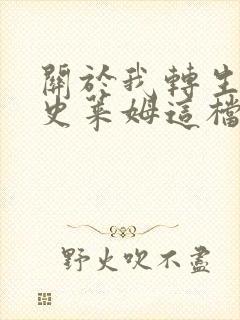 關於我轉生
史莱姆這檔
野火吹不盡